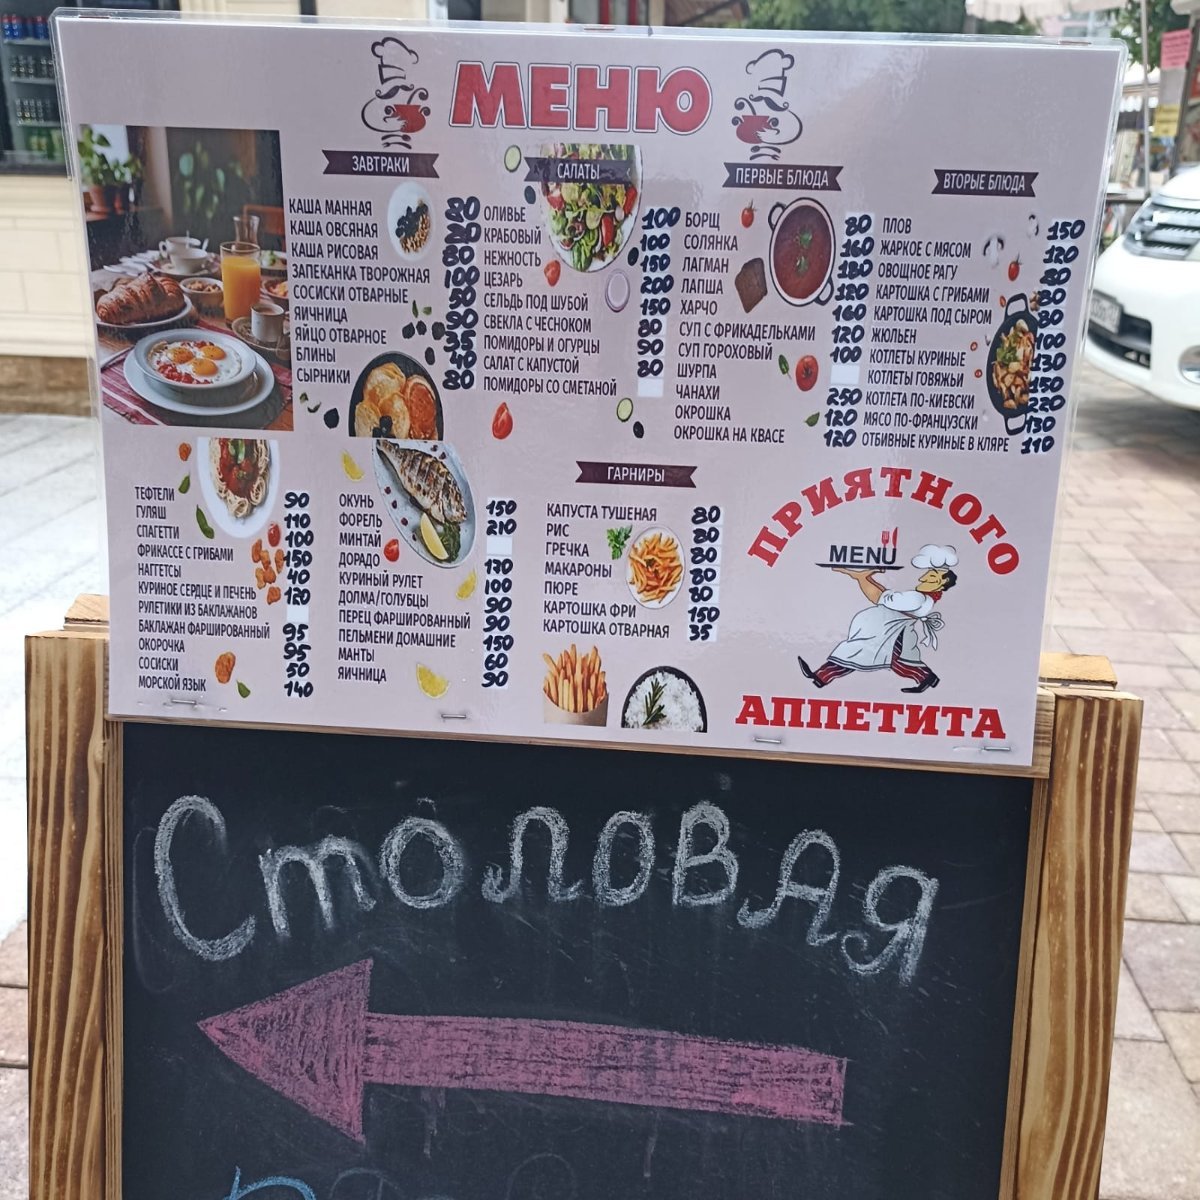 МЕНЮ
ЗАВТРАКИ
КАША МАННАЯ 80
КАША ОВСЯНАЯ 80
КАША РИСОВАЯ 80
ЗАПЕКАНКА ТВОРОЖНАЯ 100
СОСИСКИ ОТВАРНЫЕ 50
ЯИЧНИЦА 90
ЯЙЦО ОТВАРНОЕ 35
БЛИНЫ 40
СЫРНИКИ 80
САЛАТЫ
ОЛИВЬЕ 100
КРАБОВЫЙ 100
НЕЖНОСТЬ 150
ЦЕЗАРЬ 200
СЕЛЬДЬ ПОД ШУБОЙ 150
СВЕКЛА С ЧЕСНОКОМ 80
ПОМИДОРЫ И ОГУРЦЫ 90
САЛАТ С КАПУСТОЙ 80
ПОМИДОРЫ СО СМЕТАНОЙ
ПЕРВЫЕ БЛЮДА
БОРЩ 80
СОЛЯНКА 160
ЛАГМАН 180
ЛАПША 120
ХАРЧО 160
СУП С ФРИКАДЕЛЬКАМИ 120
СУП ГОРОХОВЫЙ 100
ШУРПА
ЧАНАХИ 250
ОКРОШКА 120
ОКРОШКА НА КВАСЕ 120
ВТОРЫЕ БЛЮДА
ПЛОВ 150
ЖАРКОЕ С МЯСОМ 120
ОВОЩНОЕ РАГУ 80
КАРТОШКА С ГРИБАМИ 80
КАРТОШКА ПОД СЫРОМ 80
ЖЮЛЬЕН 100
КОТЛЕТЫ КУРИНЫЕ 130
КОТЛЕТЫ ГОВЯЖЬИ 150
КОТЛЕТА ПО-КИЕВСКИ 220
МЯСО ПО-ФРАНЦУЗСКИ 130
ОТБИВНЫЕ КУРИНЫЕ В КЛЯРЕ 110
ТЕФТЕЛИ 90
ГУЛЯШ 110
СПАГЕТТИ 100
ФРИКАССЕ С ГРИБАМИ 150
НАГГЕТСЫ 40
КУРИНОЕ СЕРДЦЕ И ПЕЧЕНЬ 120
РУЛЕТИКИ ИЗ БАКЛАЖАНОВ
БАКЛАЖАН ФАРШИРОВАННЫЙ 95
ОКОРОЧКА 95
СОСИСКИ 50
МОРСКОЙ ЯЗЫК 140
ОКУНЬ 150
ФОРЕЛЬ 210
МИНТАЙ
ДОРАДО 170
КУРИНЫЙ РУЛЕТ 100
ДОЛМА/ГОЛУБЦЫ 90
ПЕРЕЦ ФАРШИРОВАННЫЙ 90
ПЕЛЬМЕНИ ДОМАШНИЕ 150
МАНТЫ 60
ЯИЧНИЦА 90
ГАРНИРЫ
КАПУСТА ТУШЕНАЯ 80
РИС 80
ГРЕЧКА 80
МАКАРОНЫ 80
ПЮРЕ 80
КАРТОШКА ФРИ 150
КАРТОШКА ОТВАРНАЯ 35
ПРИЯТНОГО
MENU
АППЕТИТА
Столовая